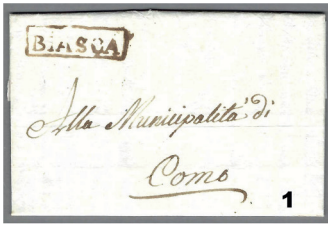 BIASCA
Alla Municipalità di
Como
1